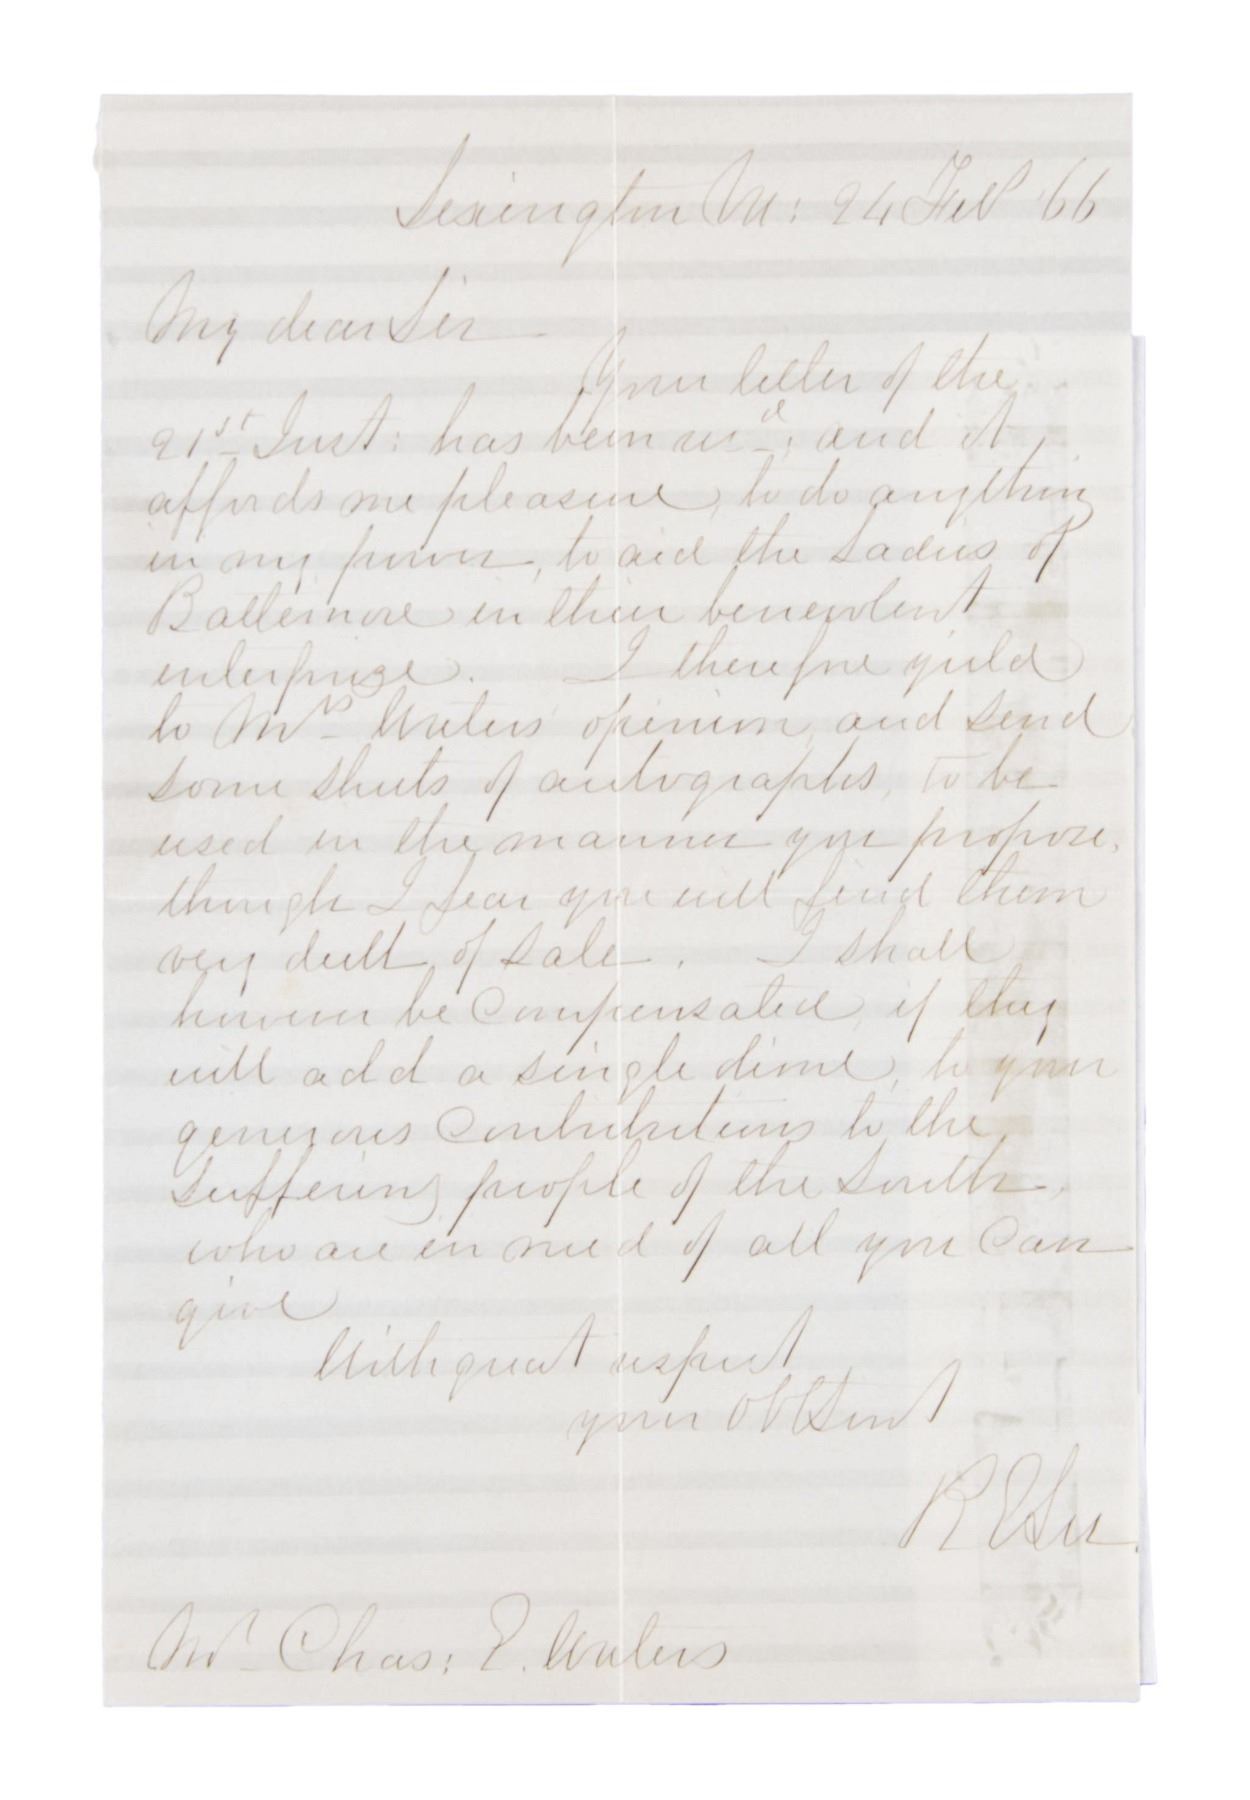 Lexington Va: 24 Feb '66
My dear Sir
Your letter of the
21st Inst: has been recd, and it
affords me pleasure, to do anything
in my power, to aid the Ladies of
Baltimore in their benevolent
enterprize. I therefore yield
to Mrs Waters' opinion, and send
some sheets of autographs, to be
used in the manner you propose,
though I fear you will find them
very dull of sale. I shall
however be compensated, if they
will add a single dime, to your
generous contributions to the
suffering people of the South,
who are in need of all you can
give
With great respect
your obt Servt
R E Lee
Mr Chas: E. Waters